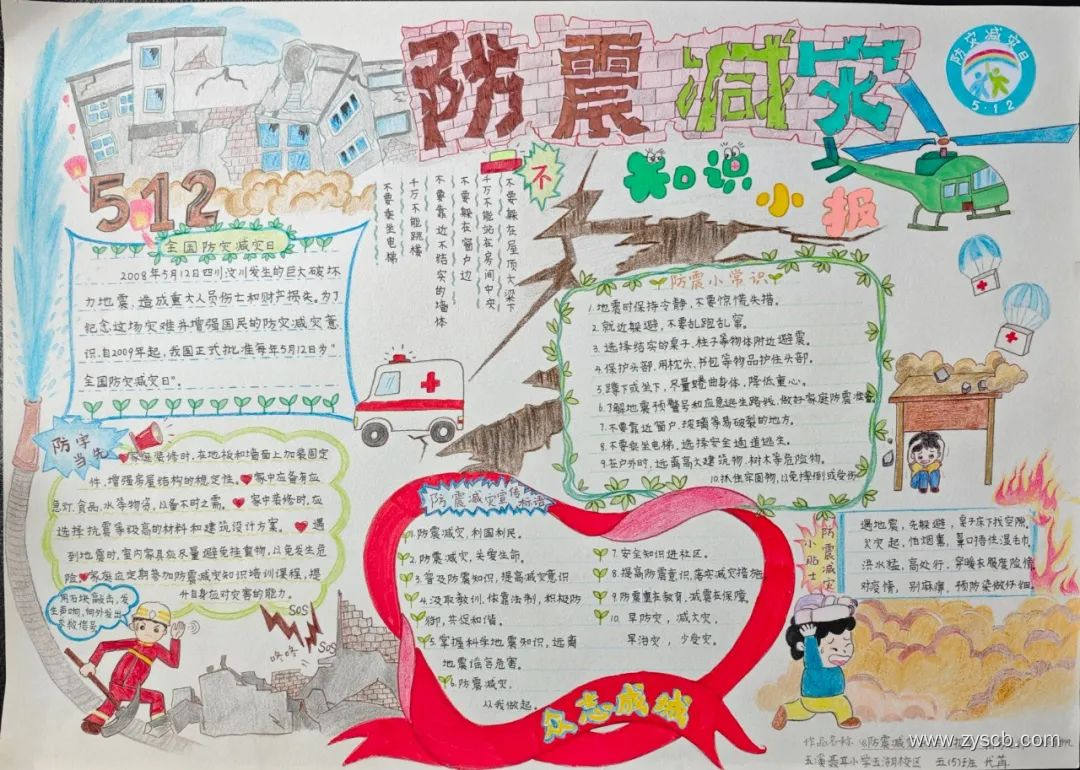 防震减灾
防灾减灾日
5·12
知识
小报
512
全国防灾减灾日
2008年5月12日四川汶川发生的巨大破坏
力地震，造成重大人员伤士和财产损失。为了
纪念这场灾难并增强国民的防灾减灾意
识，自2009年起，我国正式批准每年5月12日岁"
全国防灾减灾日"。
不
不要躲在屋顶大梁下
千万不能站在房间中央
不要躲在窗户边
不要靠近不结实的墙体
千万不能跳楼
不要乘坐电梯
防震小常识
1.地震时保持冷静，不要惊慌失措。
2.就近躲避，不要乱跑乱窜。
3.选择结实的桌子、柱子等物体附近避震。
4.保护头部，用枕头、书包等物品护住头部。
5.蹲下或坐下，尽量蜷曲身体，降低重心。
6.了解地震预警号和应急逃生路线，做好家庭防震准备
7.不要靠近窗户、玻璃等易破裂的地方。
8.不要乘坐电梯，选择安全通道逃生。
9.在户外时，远离高大建筑物、树木等危险物。
10.抓住牢固物，以免摔倒或受伤
防字
当先
家庭装修时，在地板和墙面上加装固定
件，增强房屋结构的稳定性。家中备有应
急灯、食品、水等物资，以备不时之需。家中装修时，应
选择抗震等级高的材料和建筑设计方案。遇
到地震时，室内家具应尽量避免挂重物，以免发生危
险。家庭应定期参加防震减灾知识培训课程，提
升自身应对灾害的能力。
用石块敲击，发
生声响，向外发出
求救信号
SOS
SOS
咚咚
防震减灾宣传
标语
1.防震减灾，利国利民。
2.防震减灾，关爱生命。
3.普及防震知识，提高减灾意识
4.汲取教训，依靠法制，积极防
御，共促和谐。
5.掌握科学地震知识，远离
地震谣言危害。
6.防震减灾，
从我做起。
7.安全知识进社区。
8.提高防震意识，落实减灾措施
9.防震重在教育，减震在保障。
10.早防灾，减大灾，
早治灾，少受灾。
众志成城
防震减灾
小贴士
遇地震，先躲避，桌子床下找空隙。
火灾起，怕烟熏，鼻口捂住湿毛巾。
洪水猛，高处行，穿暖衣服度险情
对疫情，别麻痹，预防染做仔细。
作品名称：《防震减
五溪聂耳小学五湖校区 五(5)班
www.zyscb.com